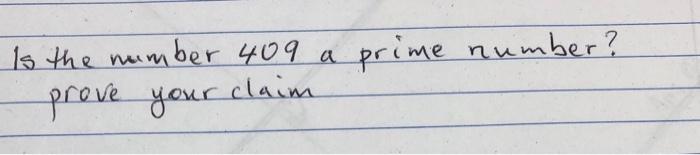 Is the number 409 a prime number?
prove your claim